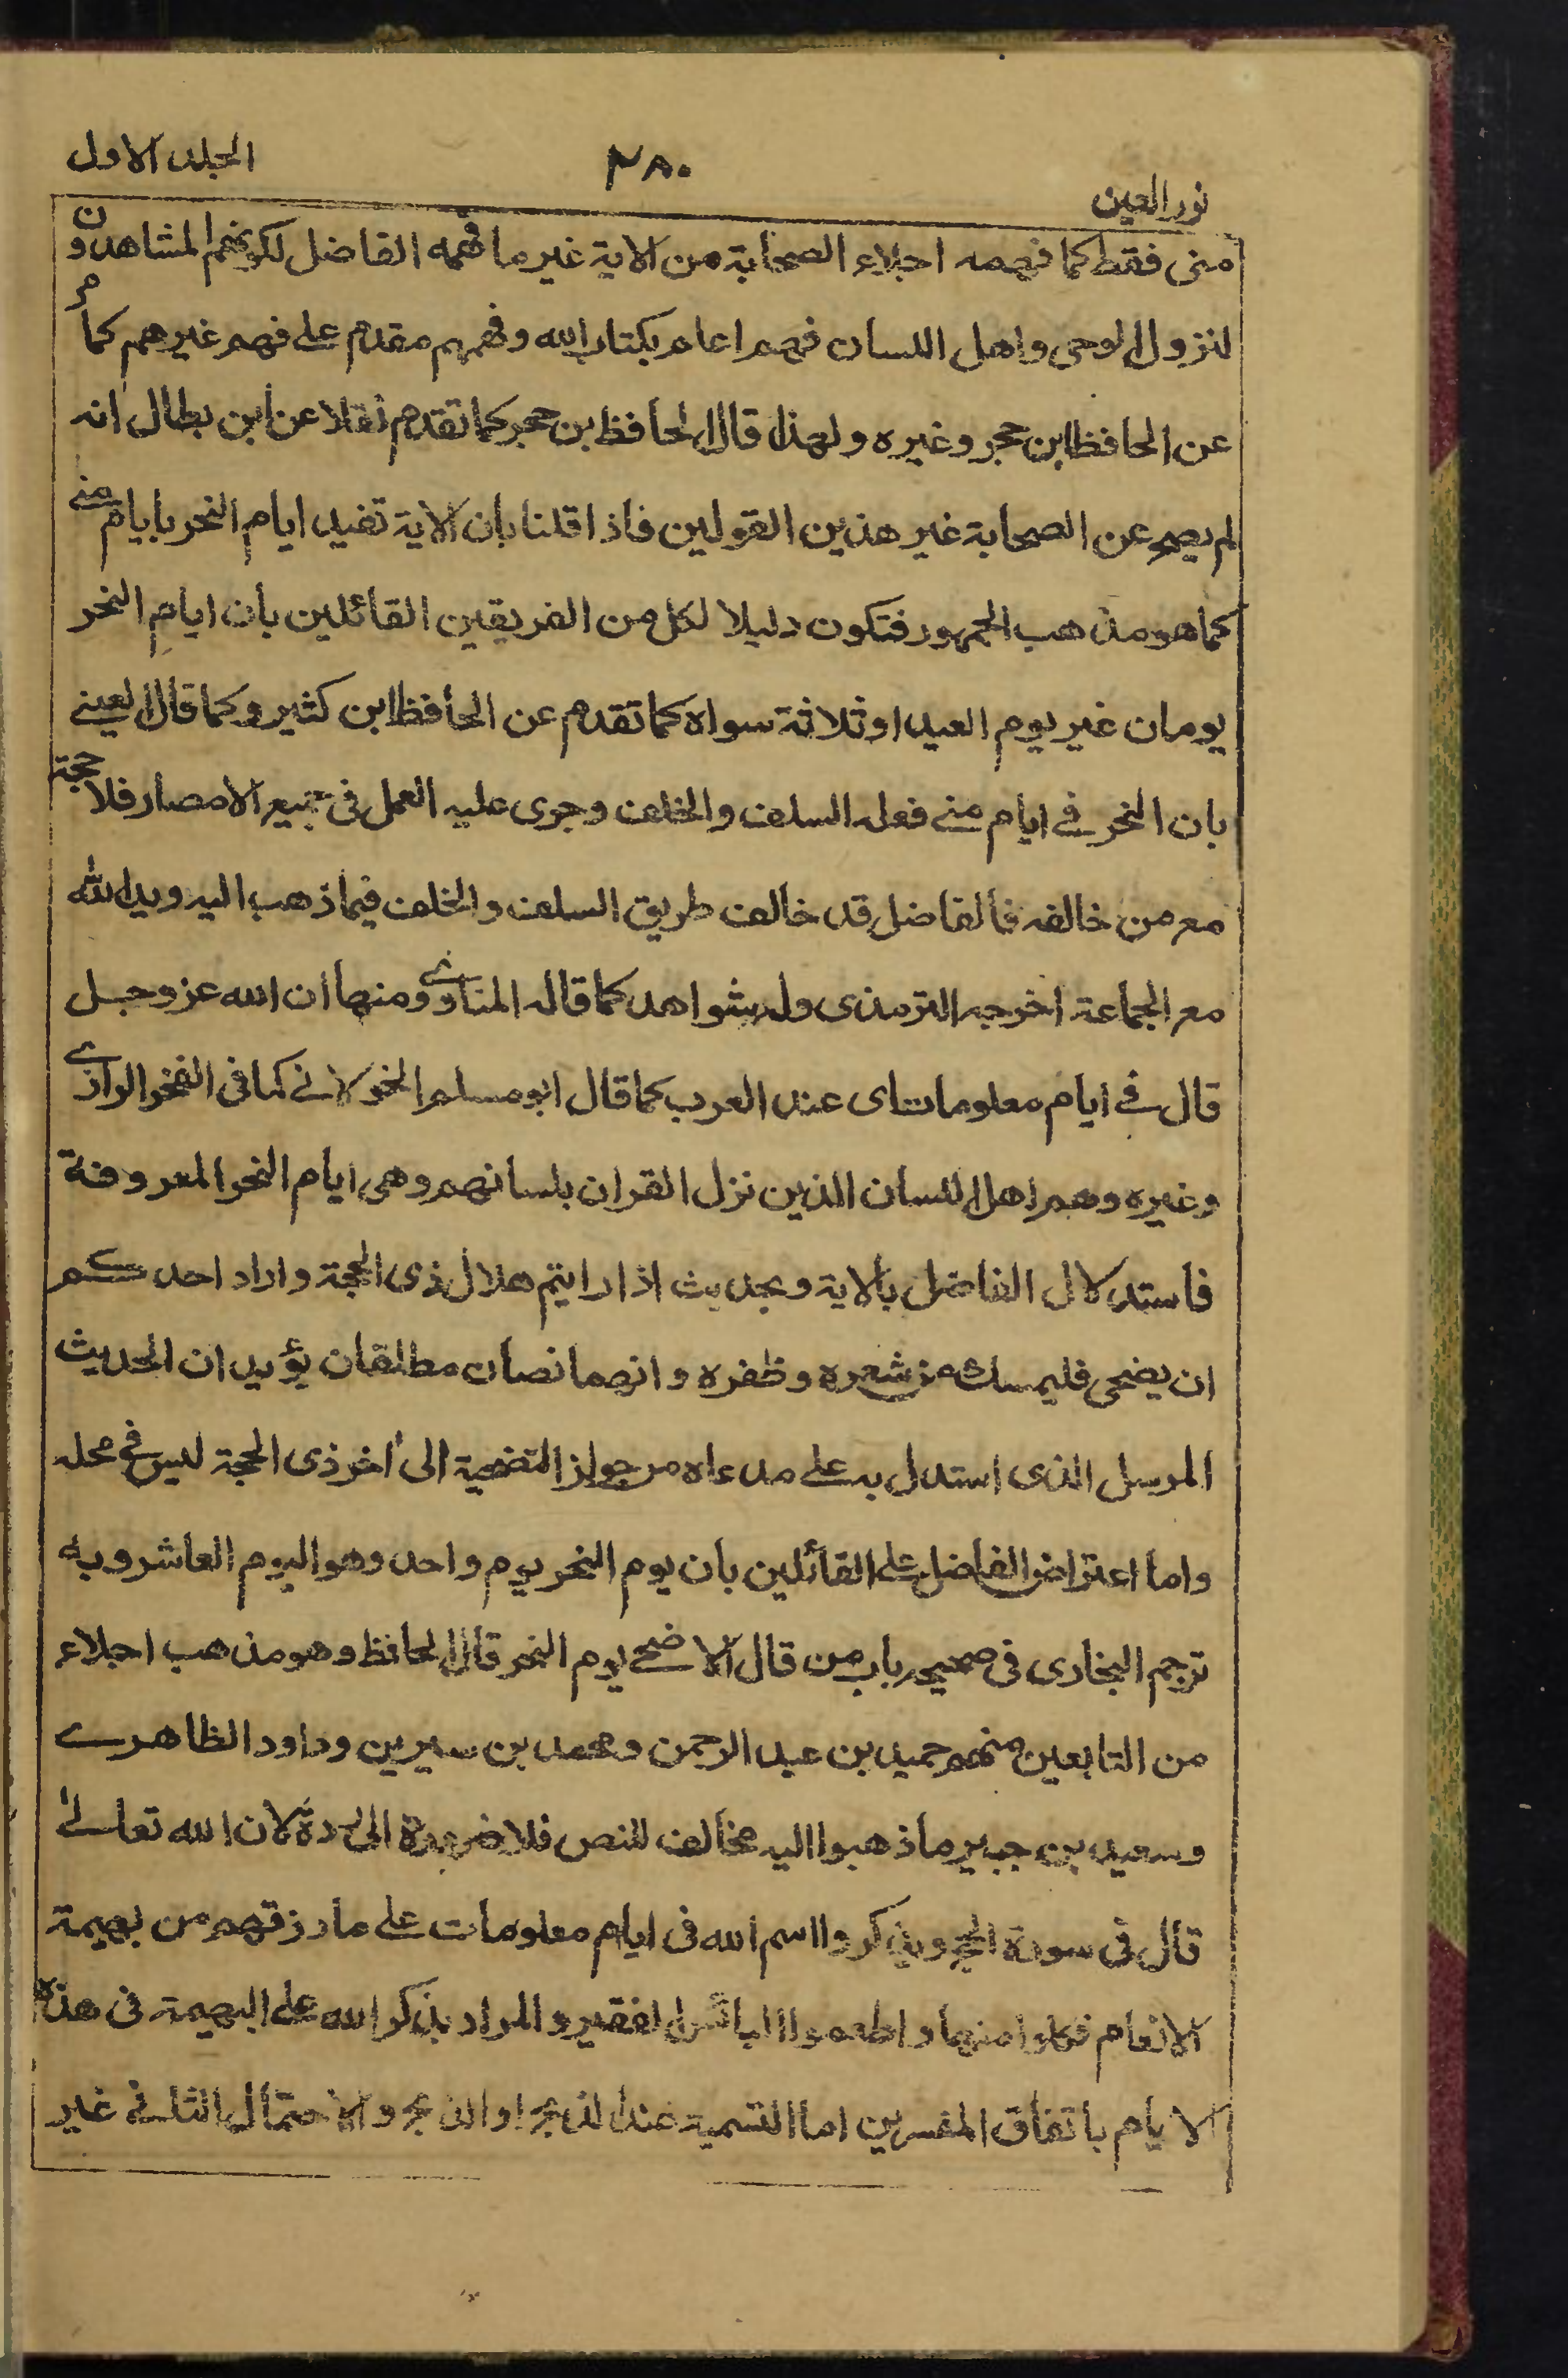 نور العين
٢٨٠
الجلد الاول
منى فقط كما فهمه اجلاء الصحابة من الاية غير ما فهمه الفاضل لكونهم المشاهدون
لنزول الوحي واهل اللسان فهم اعلم بكتاب الله وفهمهم مقدم على فهم غيرهم كما مر
عن الحافظ ابن حجر وغيره ولهذا قال الحافظ بن حجر كما تقدم نقلا عن ابن بطال انه
لم يصح عن الصحابة غير هذين القولين فاذا قلنا بان الاية تفيد ايام النحر بايام منى
كما هو مذهب الجمهور فتكون دليلا لكل من الفريقين القائلين بان ايام النحر
يومان غير يوم العيد او ثلاثة سواه كما تقدم عن الحافظ ابن كثير وكما قال العيني
بان النحر في ايام منى فعله السلف والخلف وجرى عليه العمل في جميع الامصار فلا حجة
مع من خالفه فالفاضل قد خالف طريق السلف والخلف فيما ذهب اليه ويد الله
مع الجماعة اخرجه الترمذى وله شواهد كما قاله المناوى ومنها ان الله عز وجل
قال في ايام معلومات اى عند العرب كما قال ابو مسلم الخولاني كما في الفخر الرازى
وغيره وهم اهل اللسان الذين نزل القران بلسانهم وهى ايام النحر المعروفة
فاستدلال الفاضل بالاية وبحديث اذا رايتم هلال ذى الحجة واراد احدكم
ان يضحى فليمسك من شعره وظفره وانهما نصان مطلقان يؤيدان الحديث
المرسل الذى استدل به على مدعاه من جواز التضحية الى اخر ذى الحجة ليس في محله
واما اعتراض الفاضل على القائلين بان يوم النحر يوم واحد وهو اليوم العاشر وبه
ترجم البخارى في صحيحه باب من قال الاضحى يوم النحر قال الحافظ وهو مذهب اجلاء
من التابعين منهم حميد بن عبد الرحمن ومحمد بن سيرين وداود الظاهرى
وسعيد بن جبير ما ذهبوا اليه مخالف للنص فلا ضرورة الى رده لان الله تعالى
قال في سورة الحج ويذكروا اسم الله في ايام معلومات على ما رزقهم من بهيمة
الانعام فكلوا منها واطعموا البائس الفقير والمراد بذكر الله على البهيمة في هذه
الايام باتفاق المفسرين اما التسمية عند الذبح او الذبح والاحتمال الثاني غير